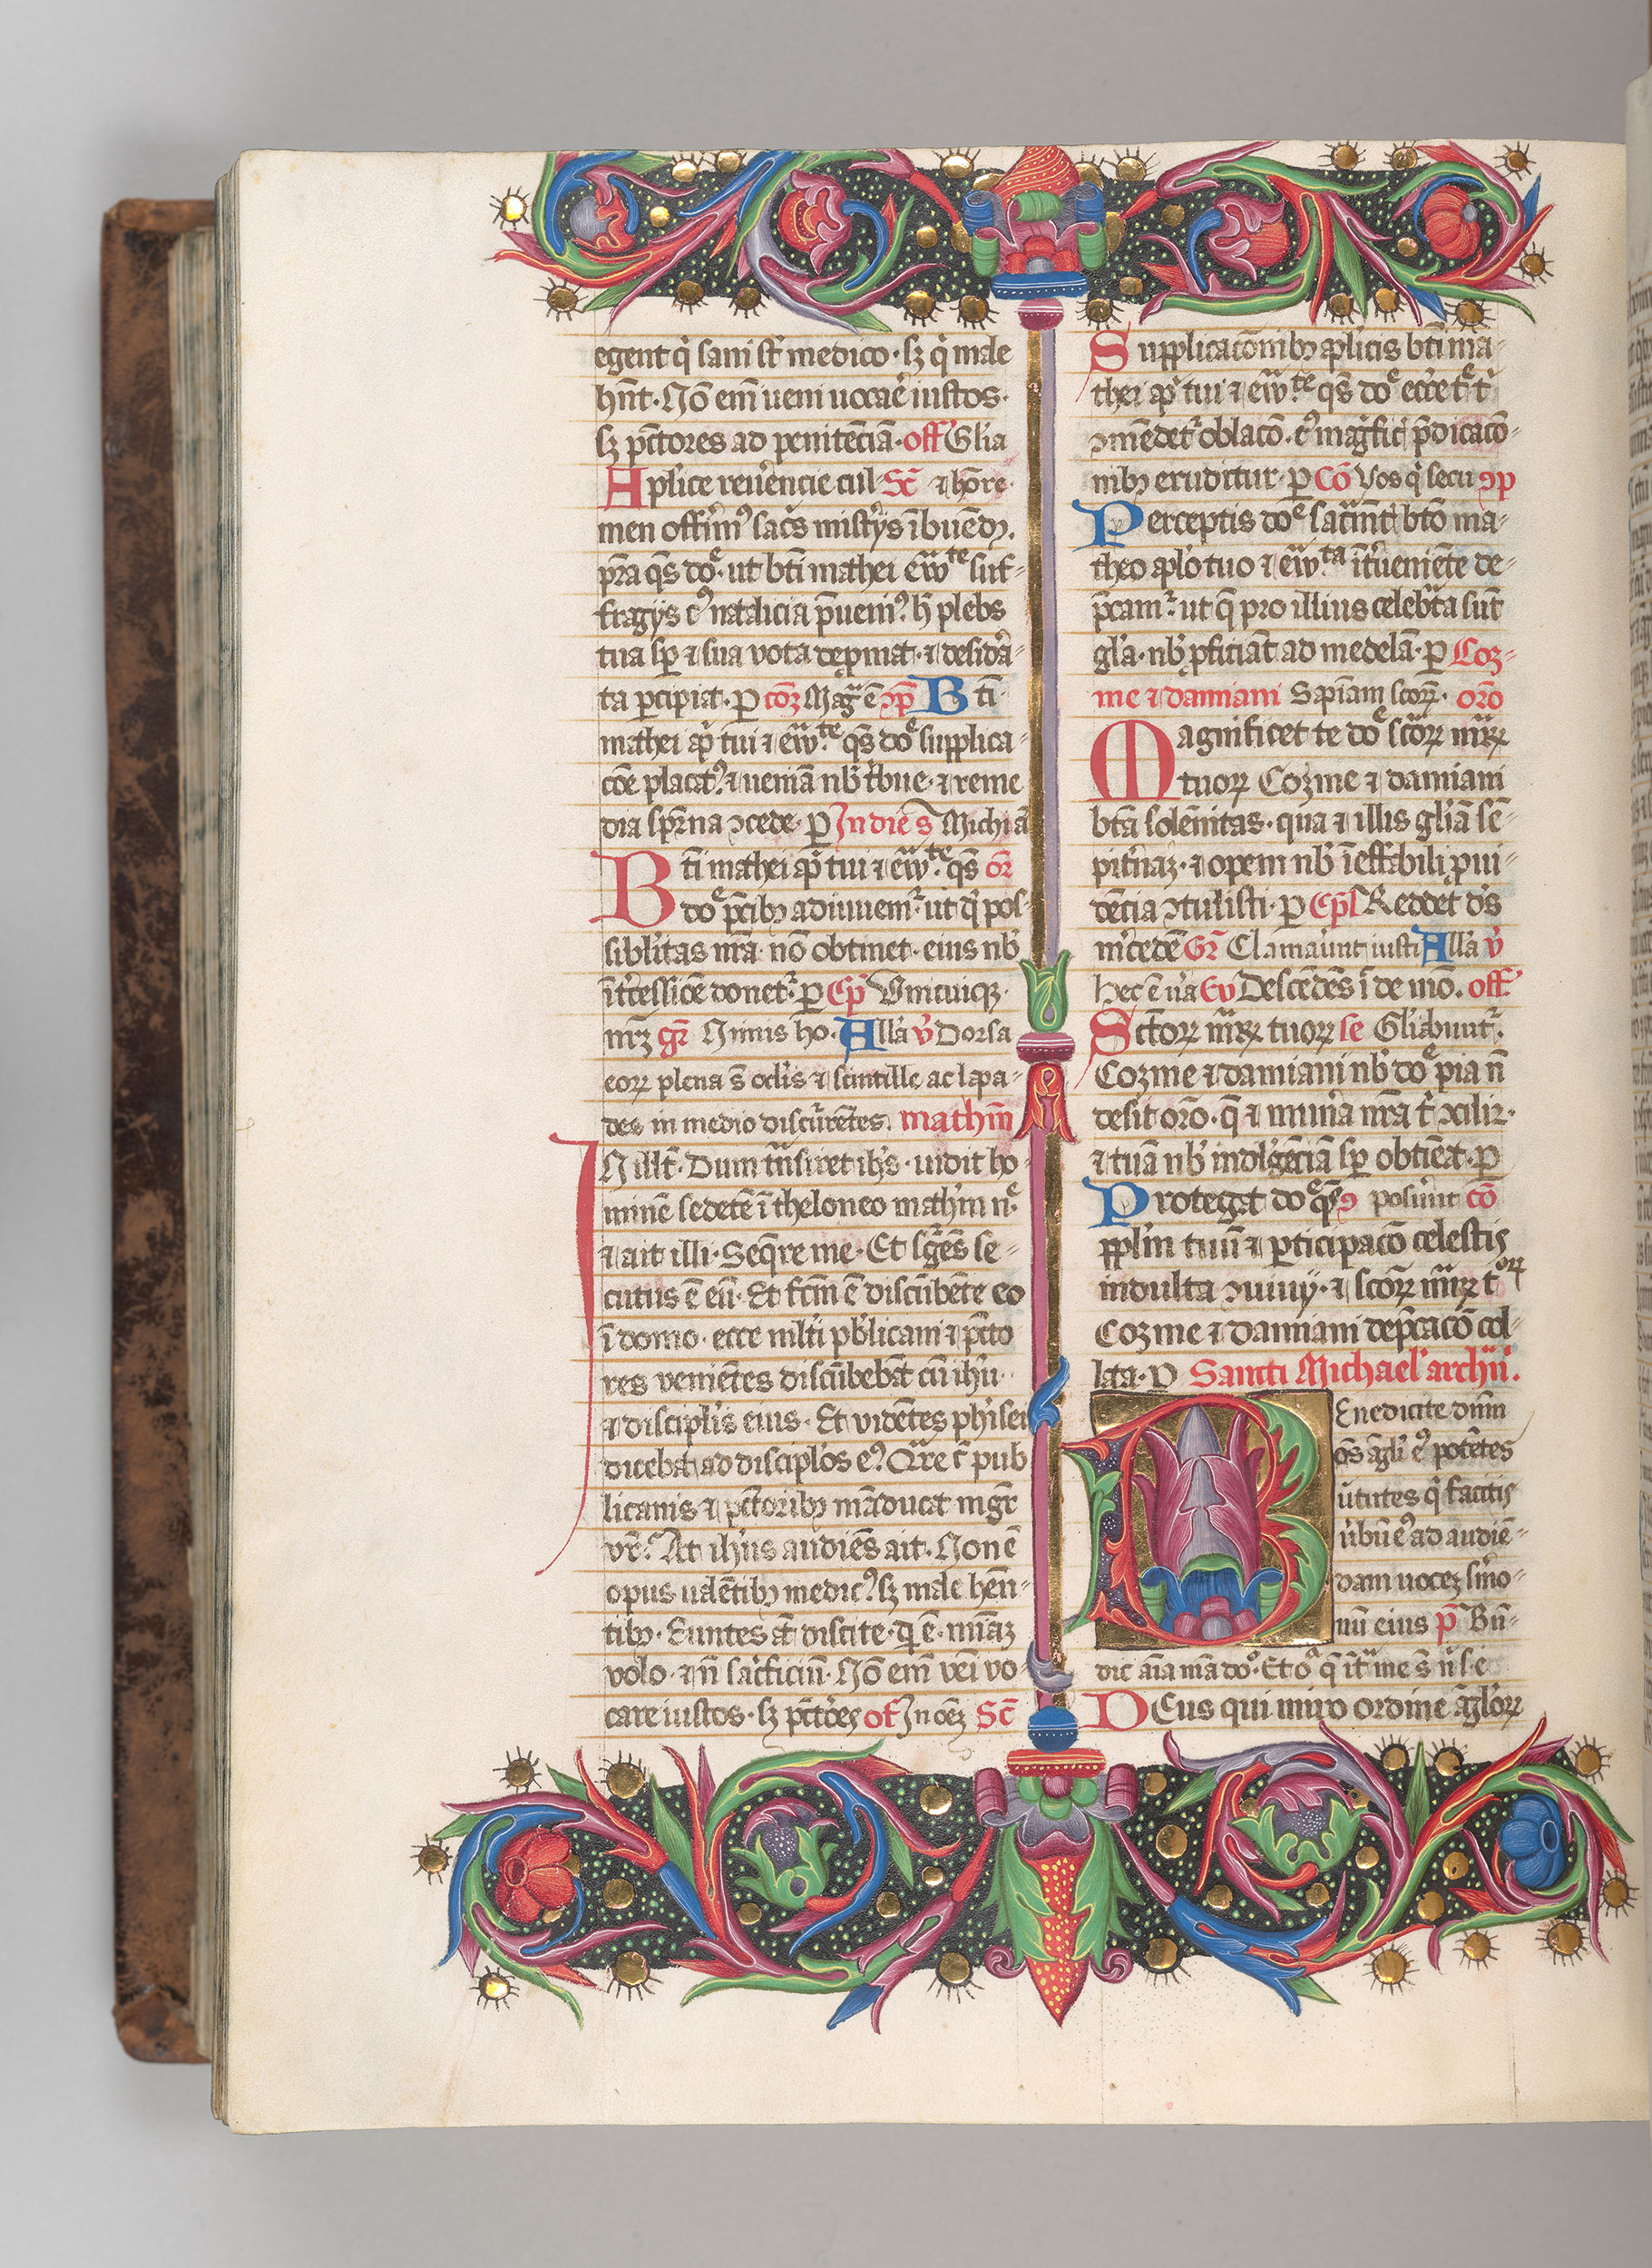 egent q̇ sani st̄ medico · sꝫ q̇ male
hn̄t · Nō em̄ ueni uocar̄e iustos ·
sꝫ pc̄tores ad penitēciā · off Gl̓ia
Apl̓ice reuēn̄cie cul Sc̄ ⁊ hōre·
men offim̄⁹ sac̄s mist̓ijs ībuēdꝫ.
pr̄a qs̄ dōe · ut bt̄i mathei ew̄te suf-
fragijs c⁹ natalicia p̄ueni⁹ · h̄ plebs
tua sp̄ ⁊ sua vota dep̄mat · ⁊ desid̓a-
ta ꝑcipiat · ꝑ cōꝫ Mag̓ ē ꝯp̄ Bt̄i·
mathei ap̓ tui ⁊ ew̄.te qs̄ dōe supplica-
cōe placat⁹ · ⁊ ueniā nb̓ t̓bue · ⁊ reme
dia sp̄rna ꝯcede · ꝑ In die s̄ Michi ā
Bt̄i mathei ap̓ tui ⁊ ew̄.te qs̄ or̄
dōe p̄cibꝫ adiuuem̓ · ut q̇ pos-
siblitas nr̄a nō obtinet · eius nb̓
īt̄cessiōe donet̓ · ꝑ Ep̄ Vnicuiqꝫ·
nr̄ꝫ gr̄ Nimis ho· All̓a v̓ Dorsa
eoꝝ plena s̄ ocl̓is ⁊ scintille ac lāpa-
des in medio discūrētes. mathm̄
IN ill̄t̄ · Dum tn̄siret ih̓s · uidit ho-
minē sedētē ī theloneo math̓m nōe
⁊ ait illi · Seq̄re me · Et sg̓ēs se-
cutus ē eū · Et fc̄m ē discūbēte eo
ī domo · ecce mlt̄i pb̓licani ⁊ pc̄to
res veniētes discūbebāt cū ih̓u·
⁊ discipl̓is eius · Et vidētes ph̓isei
dicebāt ad disciplos e⁹ · Qr̄e c̄ pub
licanis ⁊ pc̄toribꝫ māducat mgr̄
vr̄ · At ih̓us audiēs ait · Non ē
opus ualētibꝫ medic⁹ · sꝫ male hēn-
tibꝫ · Euntes āt discite · q̇ ē · mīaꝫ
volo · ⁊ n̄ sac̓ficiū · Nō em̄ vēi vo-
care iustos · sꝫ pc̄tōes of In oēꝫ Sc̄
Supplicacōnibꝫ apl̓icis bt̄i ma-
thei ap̓ tui ⁊ ew̄.te qs̄ dōe ecc̓e t̄ t̓
ꝯmēdet̓ oblacō · c⁹ mag̓fic̓ p̄dicacō-
nibꝫ eruditur · ꝑ Cō Vos q̇ secu ꝯp
Perceptis dōe sac̓mt̄ bt̄o ma-
theo apl̓o tuo ⁊ ew̄.ta īt̓ueniēte de-
p̄cam̓ · ut q̄ pro illius celeb̓ta sūt
gl̓a · nb̓ ꝓficiāt ad medelā · ꝑ Coz-
me ⁊ damiani Sapīam scoꝝ · orō
Magnificet te dōe scōꝝ mr̄ꝝ
tuoꝝ Cozme ⁊ damiani
bt̄a solēnitas · qua ⁊ illis gl̓iā sē-
pit̓naꝫ · ⁊ opem nb̓ īeffabili ꝓui-
dēcia ꝯtulisti · ꝑ Epl̓ Reddet ds̄
m̓cedē Gr̄ Clamauūt iusti All̓a v̓
Hec ē u̓a Eu Descēdēs ī de mō. off
Sctōꝝ mr̄ꝝ tuoꝝ se Gl̓iabunt̓.
Cozme ⁊ damiani nb̓ dōe pia n̄
desit orō · q̄ ⁊ mun̓a nr̄a t̓ ꝯciliꝫ·
⁊ tuā nb̓ indl̓gēciā sp̄ obtiēat · ꝑ
Protegat dōe qs̄ posūnt cō
ppl̓m tuū ⁊ ꝑticipacō celestis
indulta ꝯuiuij · ⁊ scōꝝ mr̄ꝝ t̓oꝝ
Cozme ⁊ damiani dep̄cacō col-
lata · ꝑ Sancti Michael̓ archn̄.
Benedicite dūm
oēs āgli e⁹ potētes
ūtutes q̇ facitis
ūbū e⁹ ad audiē-
dam uoceꝫ s̄mo-
nū eius p̄ Bn̄-
dic aīa mā dōo · Et oīa q̄ īt̓ me s̄ n̄
Deus qui miro ordine āgl̓oꝝ